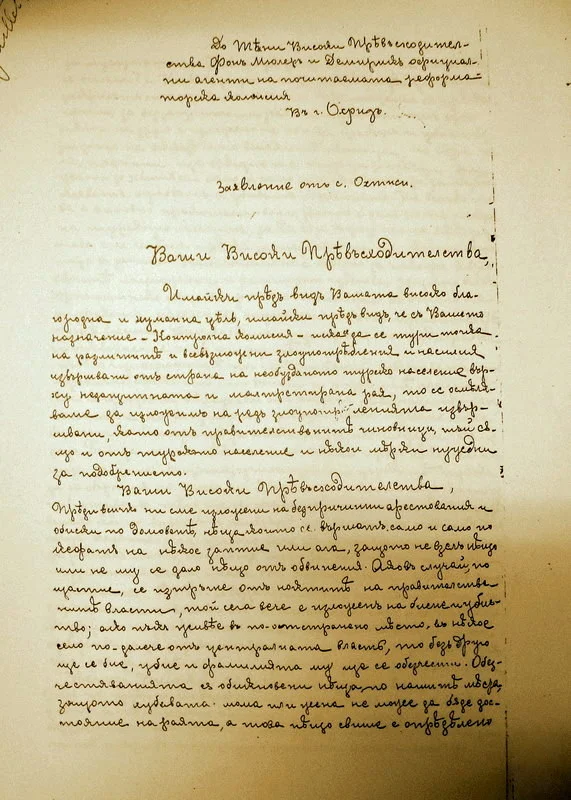 До Тѣхни Високи Прѣвъсходител-
ства Фонъ Мюлеръ и Демерикъ официал-
ни агенти на почитаемата реформа-
торска комисия
Въ г. Охридъ.
Заявление отъ с. Охтиси.
Ваши Високи Прѣвъсходителства,
Имайки прѣдъ видъ Вашата високо бла-
городна и хуманна цѣль, имайки прѣдъ видъ, че съ Вашето
назначение - Контролна комисия - искада се тури точка
на различнитѣ и всевъзможни злоупотрѣбления и насилия
извършвани отъ страна на необузданото турско население вър-
ху незащитната и мълчрстрана рая, то се осмѣля-
ваме да изложимъ на редъ злоупотрѣбленията извър-
швани, както отъ правителственнитѣ чиновници, тъй сѫ-
що и отъ турското население и нѣкои мѣрки нуждни
за подобрението.
Ваши Високи Прѣвъсходителства,
Прѣди всичко ни сме изложени на безпричинни арестования и
обиски по домоветѣ, нѣща които се вършатъ само и само по
кефътъ на нѣкое заптие или ага, защото не взелъ нѣщо
или не му се дало нѣщо отъ обвинения. Ако въ случай, по
щастие, се изтръгне отъ ноктитѣ на правителстве-
нитѣ власти, той сега вече е изложенъ на биене и убис-
тво; ако пъкъ живѣе въ по-отстранено мѣсто, въ нѣкое
село по-далече отъ централната власть, то безъ друго
ще се бие, убие и фамилията му ще се обезчести. Обез-
честяванията сѫ обикновени нѣща по нашитѣ мѣста,
защото хубавата мома или жена не може да бѫде дос-
тояние на раята, а това нѣщо свише е опрѣдѣлено